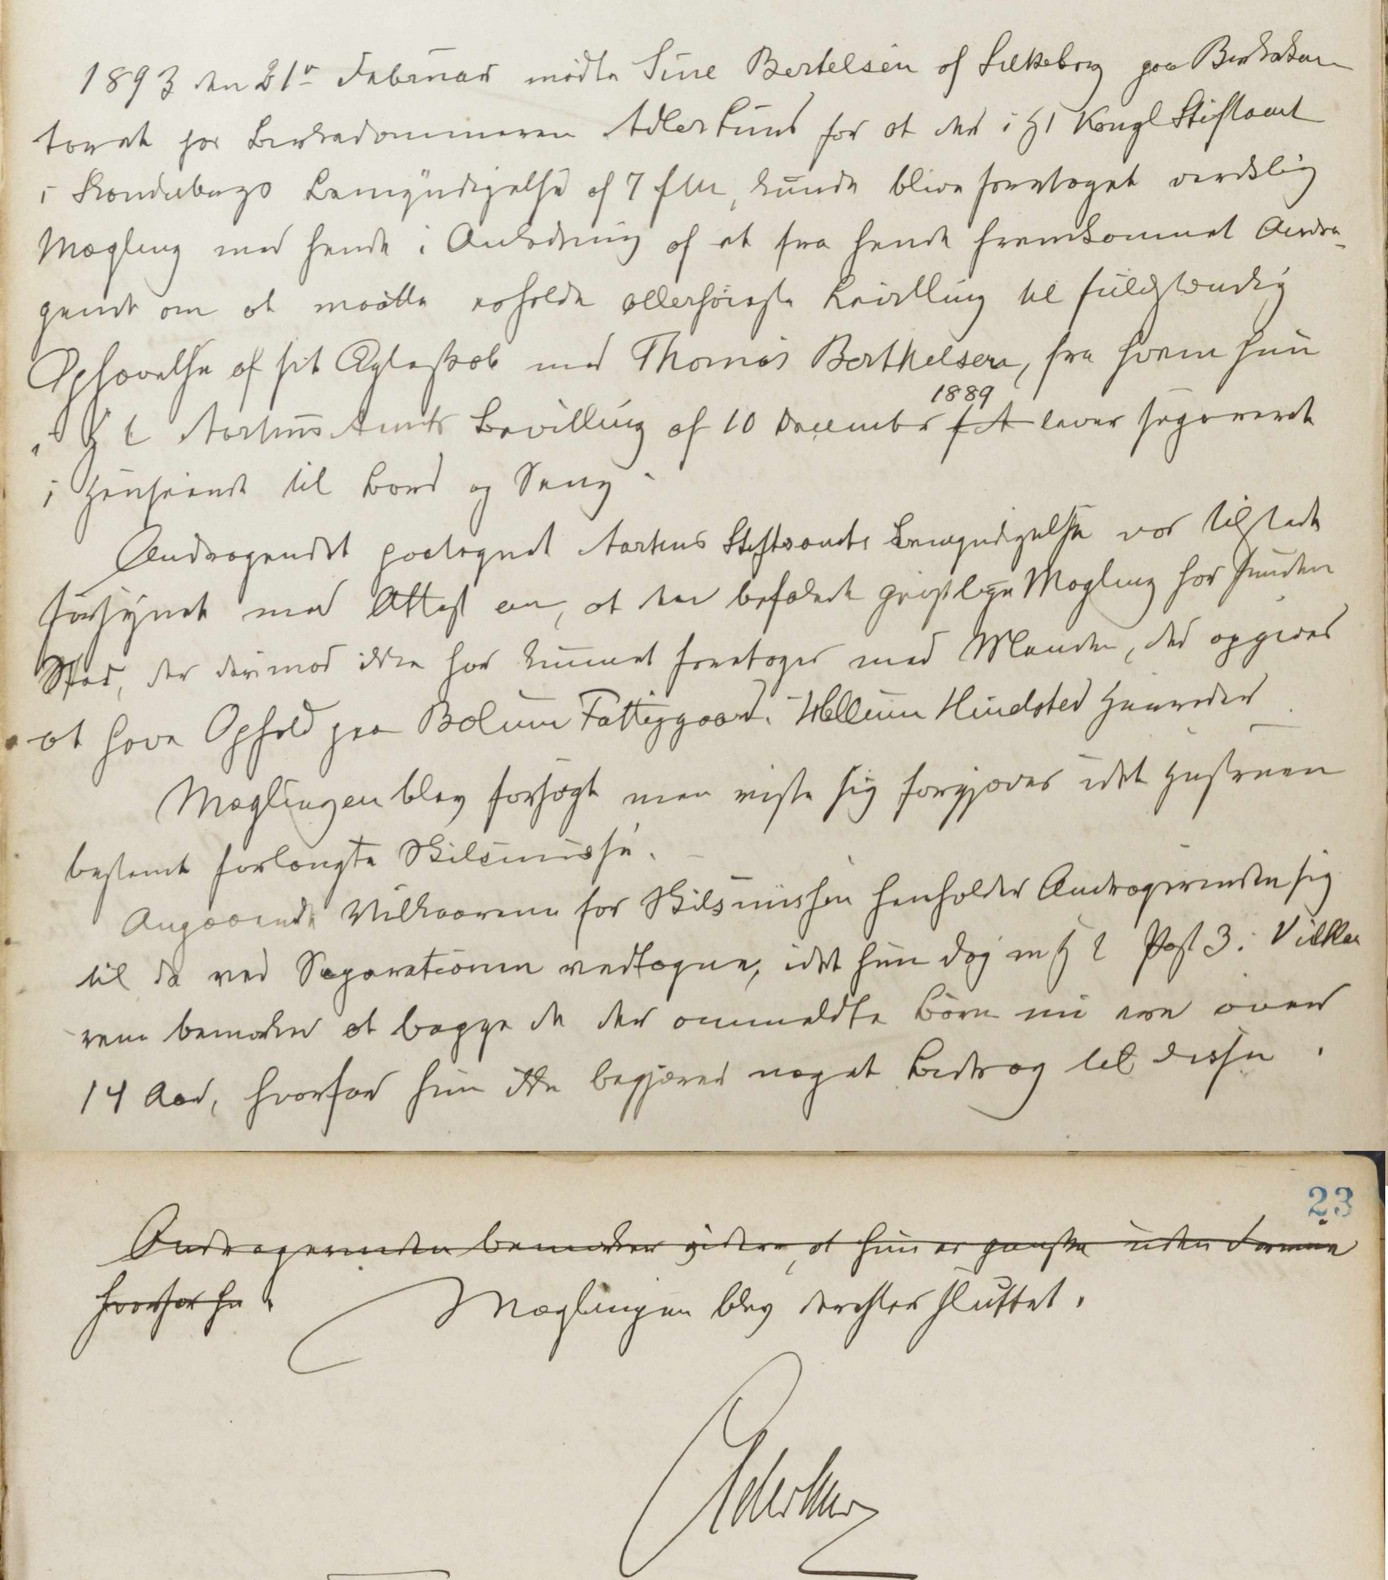 1893 den 21de Februar mødte Sine Bertelsen af Silkeborg paa Birkekon
toret for Birkedommeren Adlerlund for at der i H t Kongl Stiftamt
i Skanderborgs Bemyndigelse af 7 f M, kunde blive foretaget verdslig
Mægling med hende i Anledning af et fra hende fremkommet Andra-
gende om at maatte erholde allerhøieste Bevilling til fuldstændig
Ophævelse af sit Ægteskab med Thomas Berthelsen, fra hvem hun
i H t Aarhuus Amts Bevilling af 10 December f A 1889 lever separeret
i Henseende til Bord og Seng.
Andragendet paategnet Aarhus Stiftsamts Bemyndigelse var tilstede
forsynet med Attest om, at den befalede geistlige Mægling har funden
Sted, der derimod ikke har kunnet foretages med Manden, der opgives
at have Ophold paa Bælum Fattiggaard. Hellum Hindsted Herreder
Mæglingen blev forsøgt men viste sig forgjæves idet Hustruen
bestemt forlangte Skilsmisse.
Angaaende Vilkaarene for Skilsmissen henholder Andragerinden sig
til de ved Separationen vedtagne, idet hun dog m H t Post 3. i Vilkaa
rene bemærker at begge de der ommeldte Børn nu ere over
14 Aar, hvorfor hun ikke begjærer noget Bidrag til disse.
23
Andragerinden bemærker videre, at hun er ganske uden Formue
hvorfor hu. Mæglingen blev derefter sluttet.
Adlerlund